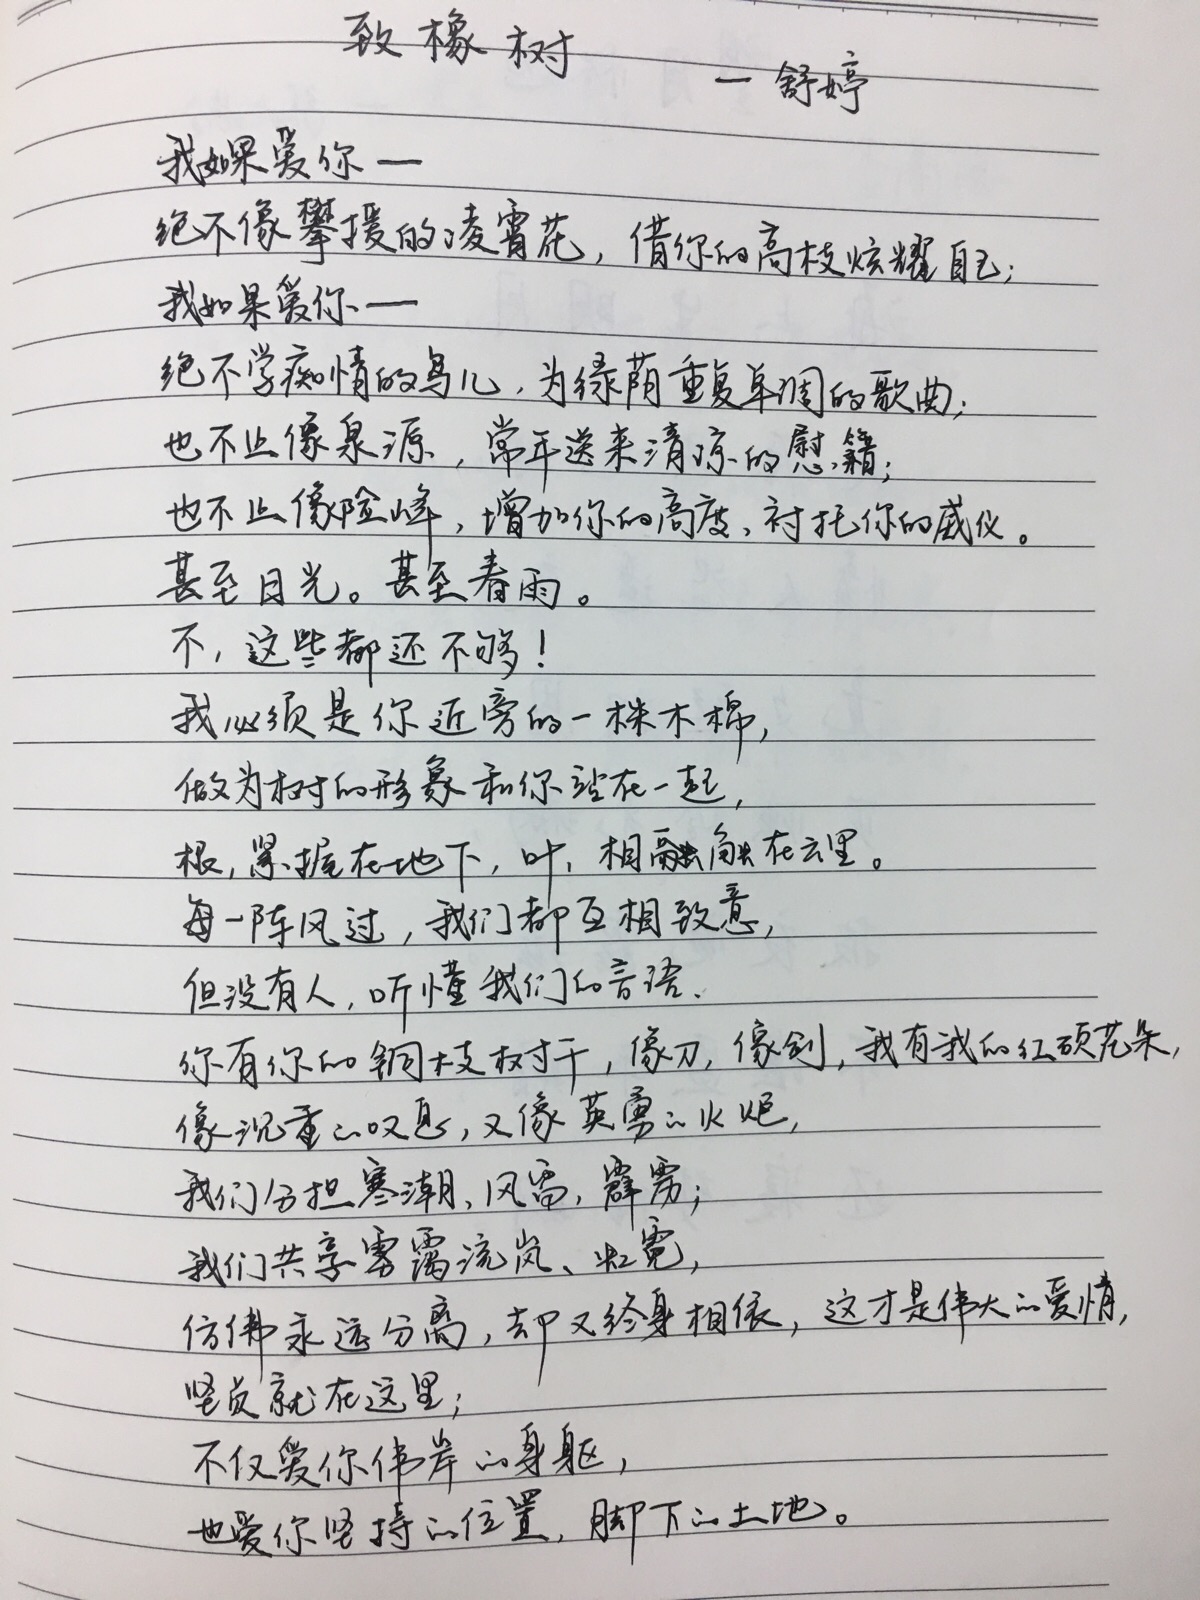 致橡树
一舒婷
我如果爱你一
绝不像攀援的凌霄花，借你的高枝炫耀自己；
我如果爱你一
绝不学痴情的鸟儿，为绿荫重复单调的歌曲；
也不止像泉源，常年送来清凉的慰籍；
也不止像险峰，增加你的高度、衬托你的威仪。
甚至日光。甚至春雨。
不，这些都还不够！
我必须是你近旁的一株木棉，
做为树的形象和你站在一起，
根，紧握在地下，叶，相融触在云里。
每一阵风过，我们都互相致意，
但没有人，听懂我们的言语、
你有你的铜枝树干，像刀，像剑，我有我的红硕花朵，
像沉重的叹息，又像英勇的火炬，
我们分担寒潮、风雷，霹雳；
我们共享雾霭流岚、虹霓，
仿佛永远分离，却又终身相依，这才是伟大的爱情，
坚贞就在这里；
不仅爱你伟岸的身躯，
也爱你坚持的位置，脚下的土地。